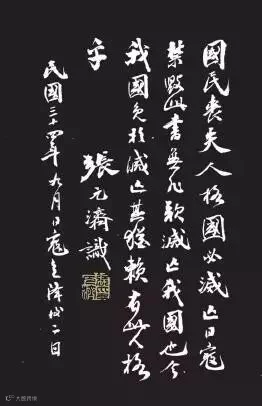 國民喪失人格國必滅亡日寇
禁毀此書無非欲滅亡我國也今
我國免於滅亡其猶賴有此人格
乎 張元濟識
民國三十四年九月日寇降後二日